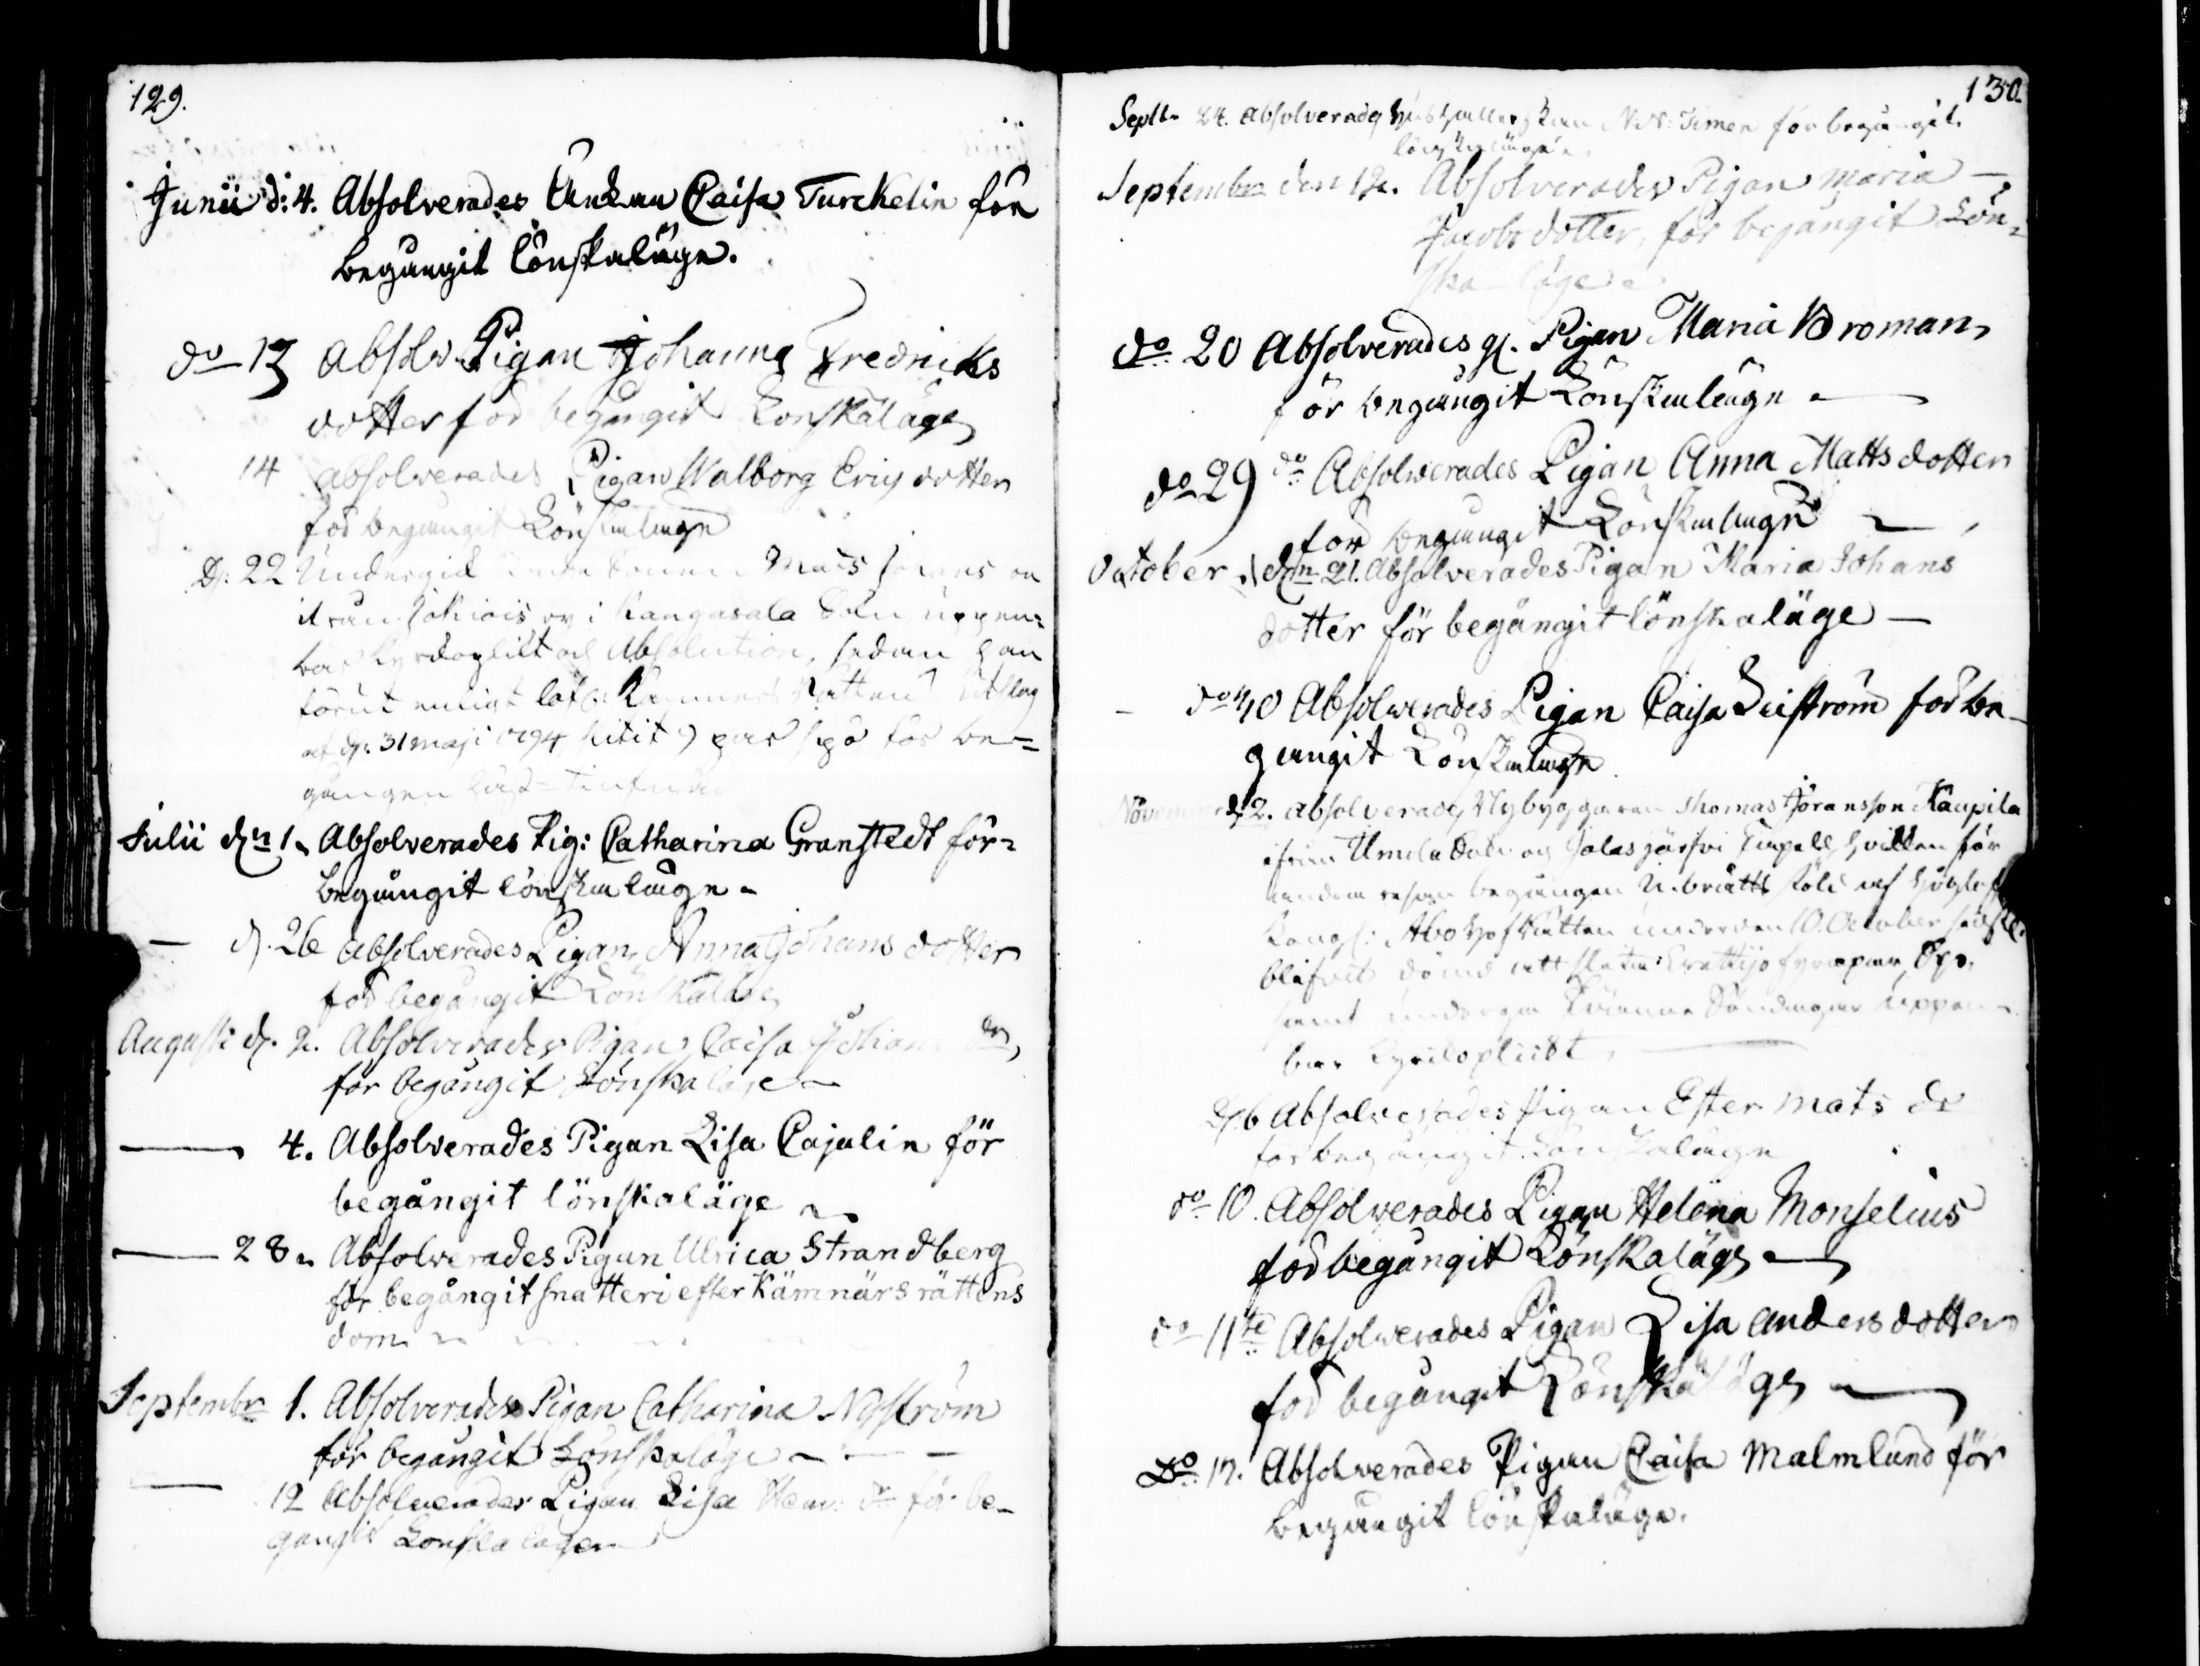 129.
Junii d: 4. Absolverades Änkan Caisa Turckelin för
begångit lönskaläge.
do 13 Absolv. Pigan Johanna Fredricks
dotter för begångit Lönskaläge
14 absolverades Pigan Walborg Erics dotter
för begångit Lönskaläge
D: 22 Undergick Mats
ifrån i Kangasala Sokn uppen=
bar Kyrkoplikt och Absolution, sedan han
förut enligt Kämners Rättens Utslag
af d: 31 maji 1794 slitit 9 par spö för be=
gången
Julii dn 1. Absolverades Pig: Catharina Granstedt för
begångit lönskaläge.
— d. 26 absolverades Pigan Anna Johans dotter
för begångit Lönskaläge
Augusti d. 2. Absolverades Pigan Caisa Johans dr,
för begångit Lönskaläge
— 4. Absolverades Pigan Lisa Cajalin för
begångit lönskaläge
— 28. Absolverades Pigan Ulrica Strandberg
för begångit snatteri efter Kämnärs rättens
dom
Septembr 1. Absolverades Pigan Catharina Nyström
för begångit Lönskaläge —
— 12 Absolverades Pigan Lisa dr för be-
gångit Lönskaläge
130.
Septbr 24. Absolverades Hushållerskan N.N. för begångit
lönskaläge.
September den 12. Absolverades Pigan Maria —
Jacobs dotter, för begångit Lön=
ska läge
do 20 Absolverades Pigan Maria Broman,
för begångit Lönskaläge —
do 29 do Absolverades Pigan Anna Matts dotter
för begångit Lönskaläge
October dn 21. Absolverades Pigan Maria Johans
dotter för begångit lönskaläge —
do Absolverades Pigan Caisa för be-
gångit Lönskaläge
November d 2. absolverades Nybyggaren Thomas Göransson Kaupila
ifrån Umola Sokn och Jalasjärfvi Capell, hvilken för
begången af Högloflige
Kongl: Åbo HofRätten under den 10. October sidstl.
blifvit dömd att slita Trettijo fyra par Spö,
samt undergå Söndagar uppen-
bar Kyrkoplickt
d. 6 Absolverades Pigan Ester Mats dr
för begångit Lönskaläge
do 10. Absolverades Pigan Helena Monselius
för begångit Lönskaläge —
do 11te Absolverades Pigan Lisa Anders dotter
för begångit Lönskaläge —
Do 17. Absolverades Pigan Caisa Malmlund för
begångit lönskaläge.